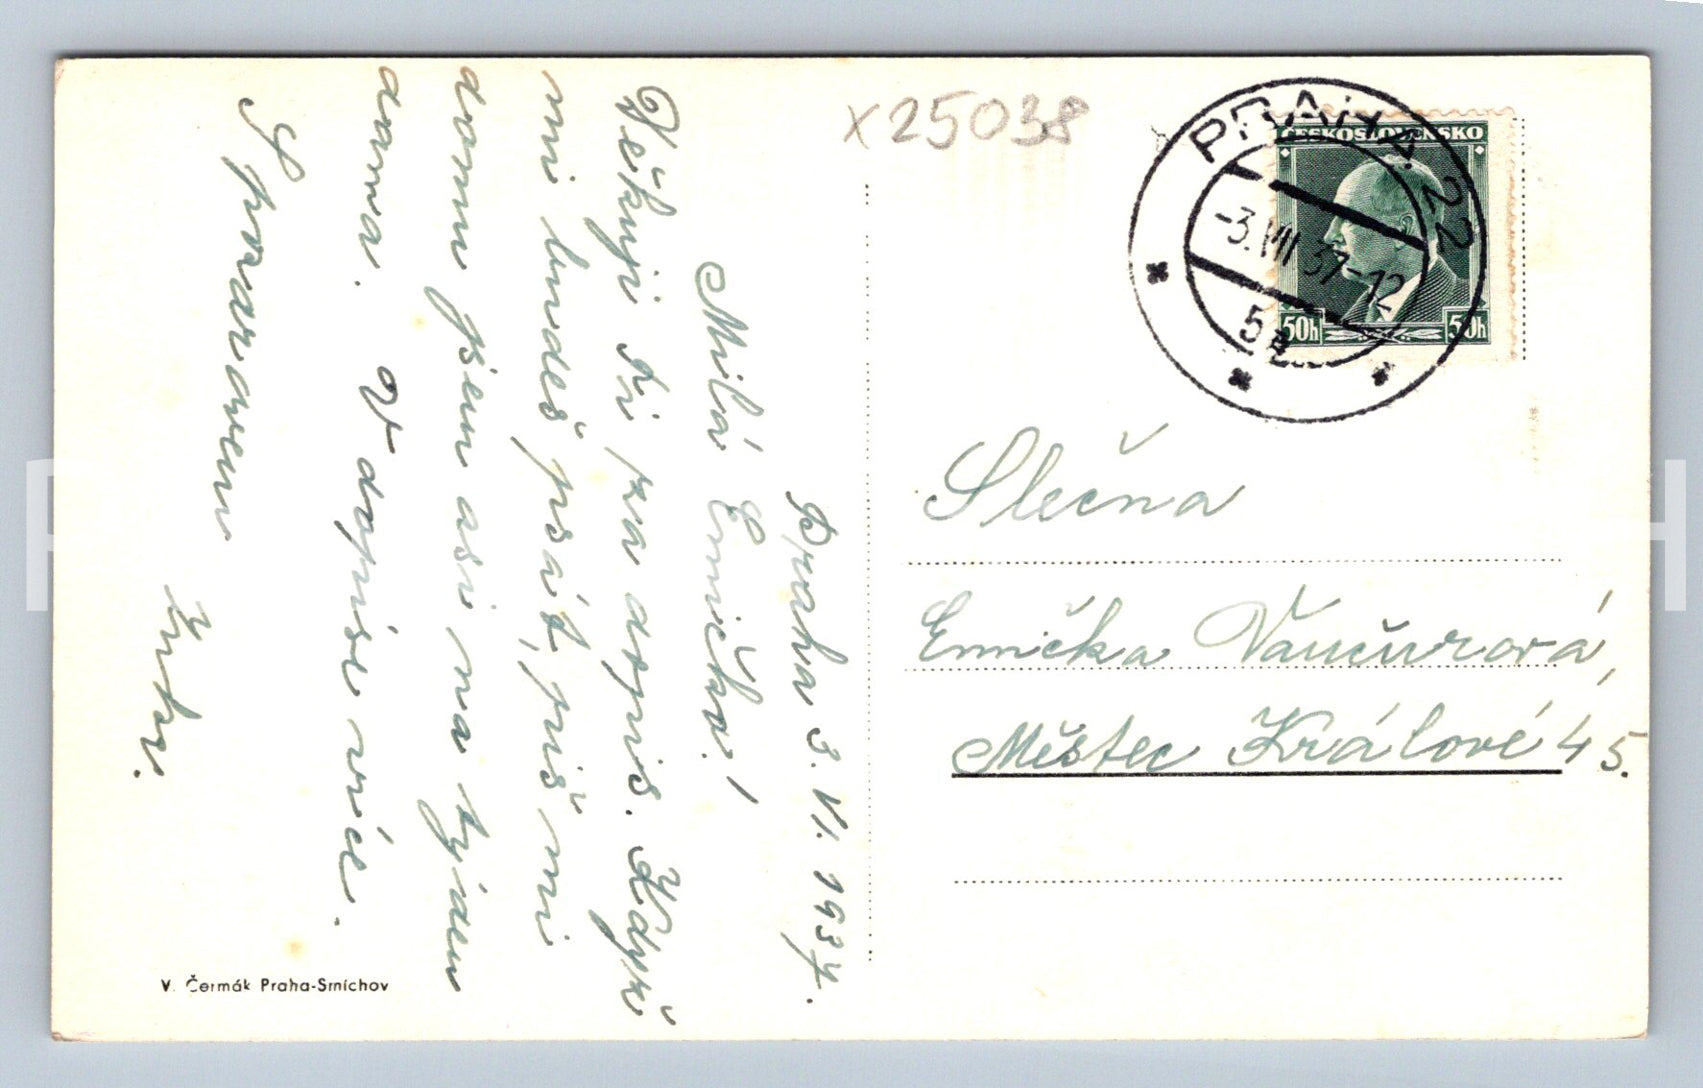 Praha 3. VI. 1937.
Milá Emičko!
Děkuji Ti za dopis. Když
mi budeš psát, piš mi
domu jsem asi na týden
doma. V dopise více.
S pozdravem
V. Čermák Praha-Smíchov
x25038
PRAHA 22
-3.VII 37-12
5a
ČESKOSLOVENSKO
50h 50h
Slečna
Emička Vančurová,
Městec Králové 45.